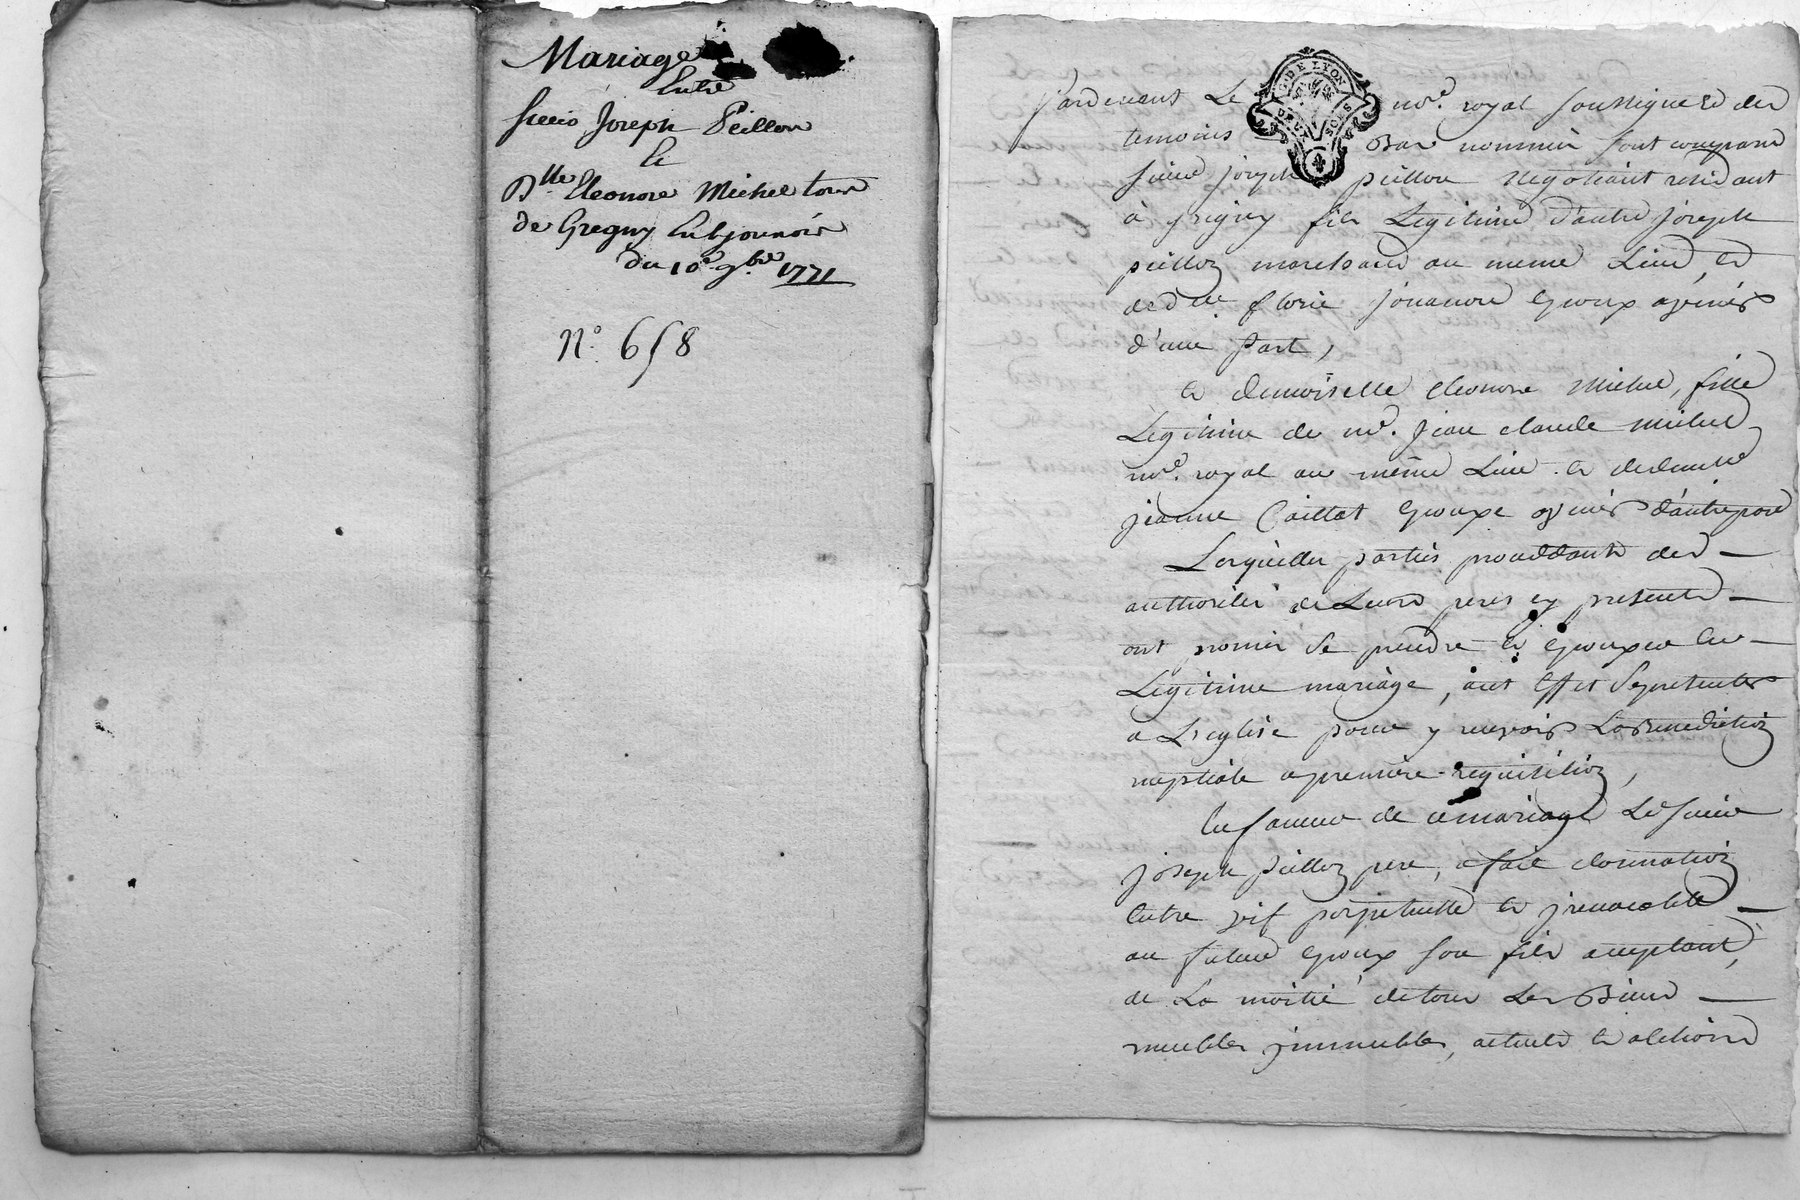 Mariage
Entre
sieur Joseph Peillon
Et
Dlle Eleonore Michel tous
de Gregny En lyonnois
du 10e 9bre 1771
N° 658
G. DE LYON
DEUX SOLS
Pardevant Le nre. royal soussigné Et des
temoins Bas nommés sont comparu
sieur joseph peillon negotiant residant
à grigny fils Legitime d'autre joseph
peillon marchand au meme Lieu, et
de dlle florie jouanon Epoux a
d'une part,
et demoiselle Eleonore Michel, fille
Legitime de me. jean claude michel
nre. royal au même Lieu et de demlle
jeanne Caillat Epoux d'autre part
Lesquelles parties procedantes des
authorités de Leurs peres cy presents
ont promis se prendre et Epouser En
Legitime mariage, a cet Effet se presenter
a L'eglise pour y recevoir La Benediction
nuptiale a premiere requisition,
En faveur de ce mariage Led sieur
joseph peillon pere, a fait donnation
Entre vif perpetuelle et jrrevocable
au futur Epoux son fils acceptant,
de La moitié de tous Les Biens
meubles jmmeubles, actuels et actions